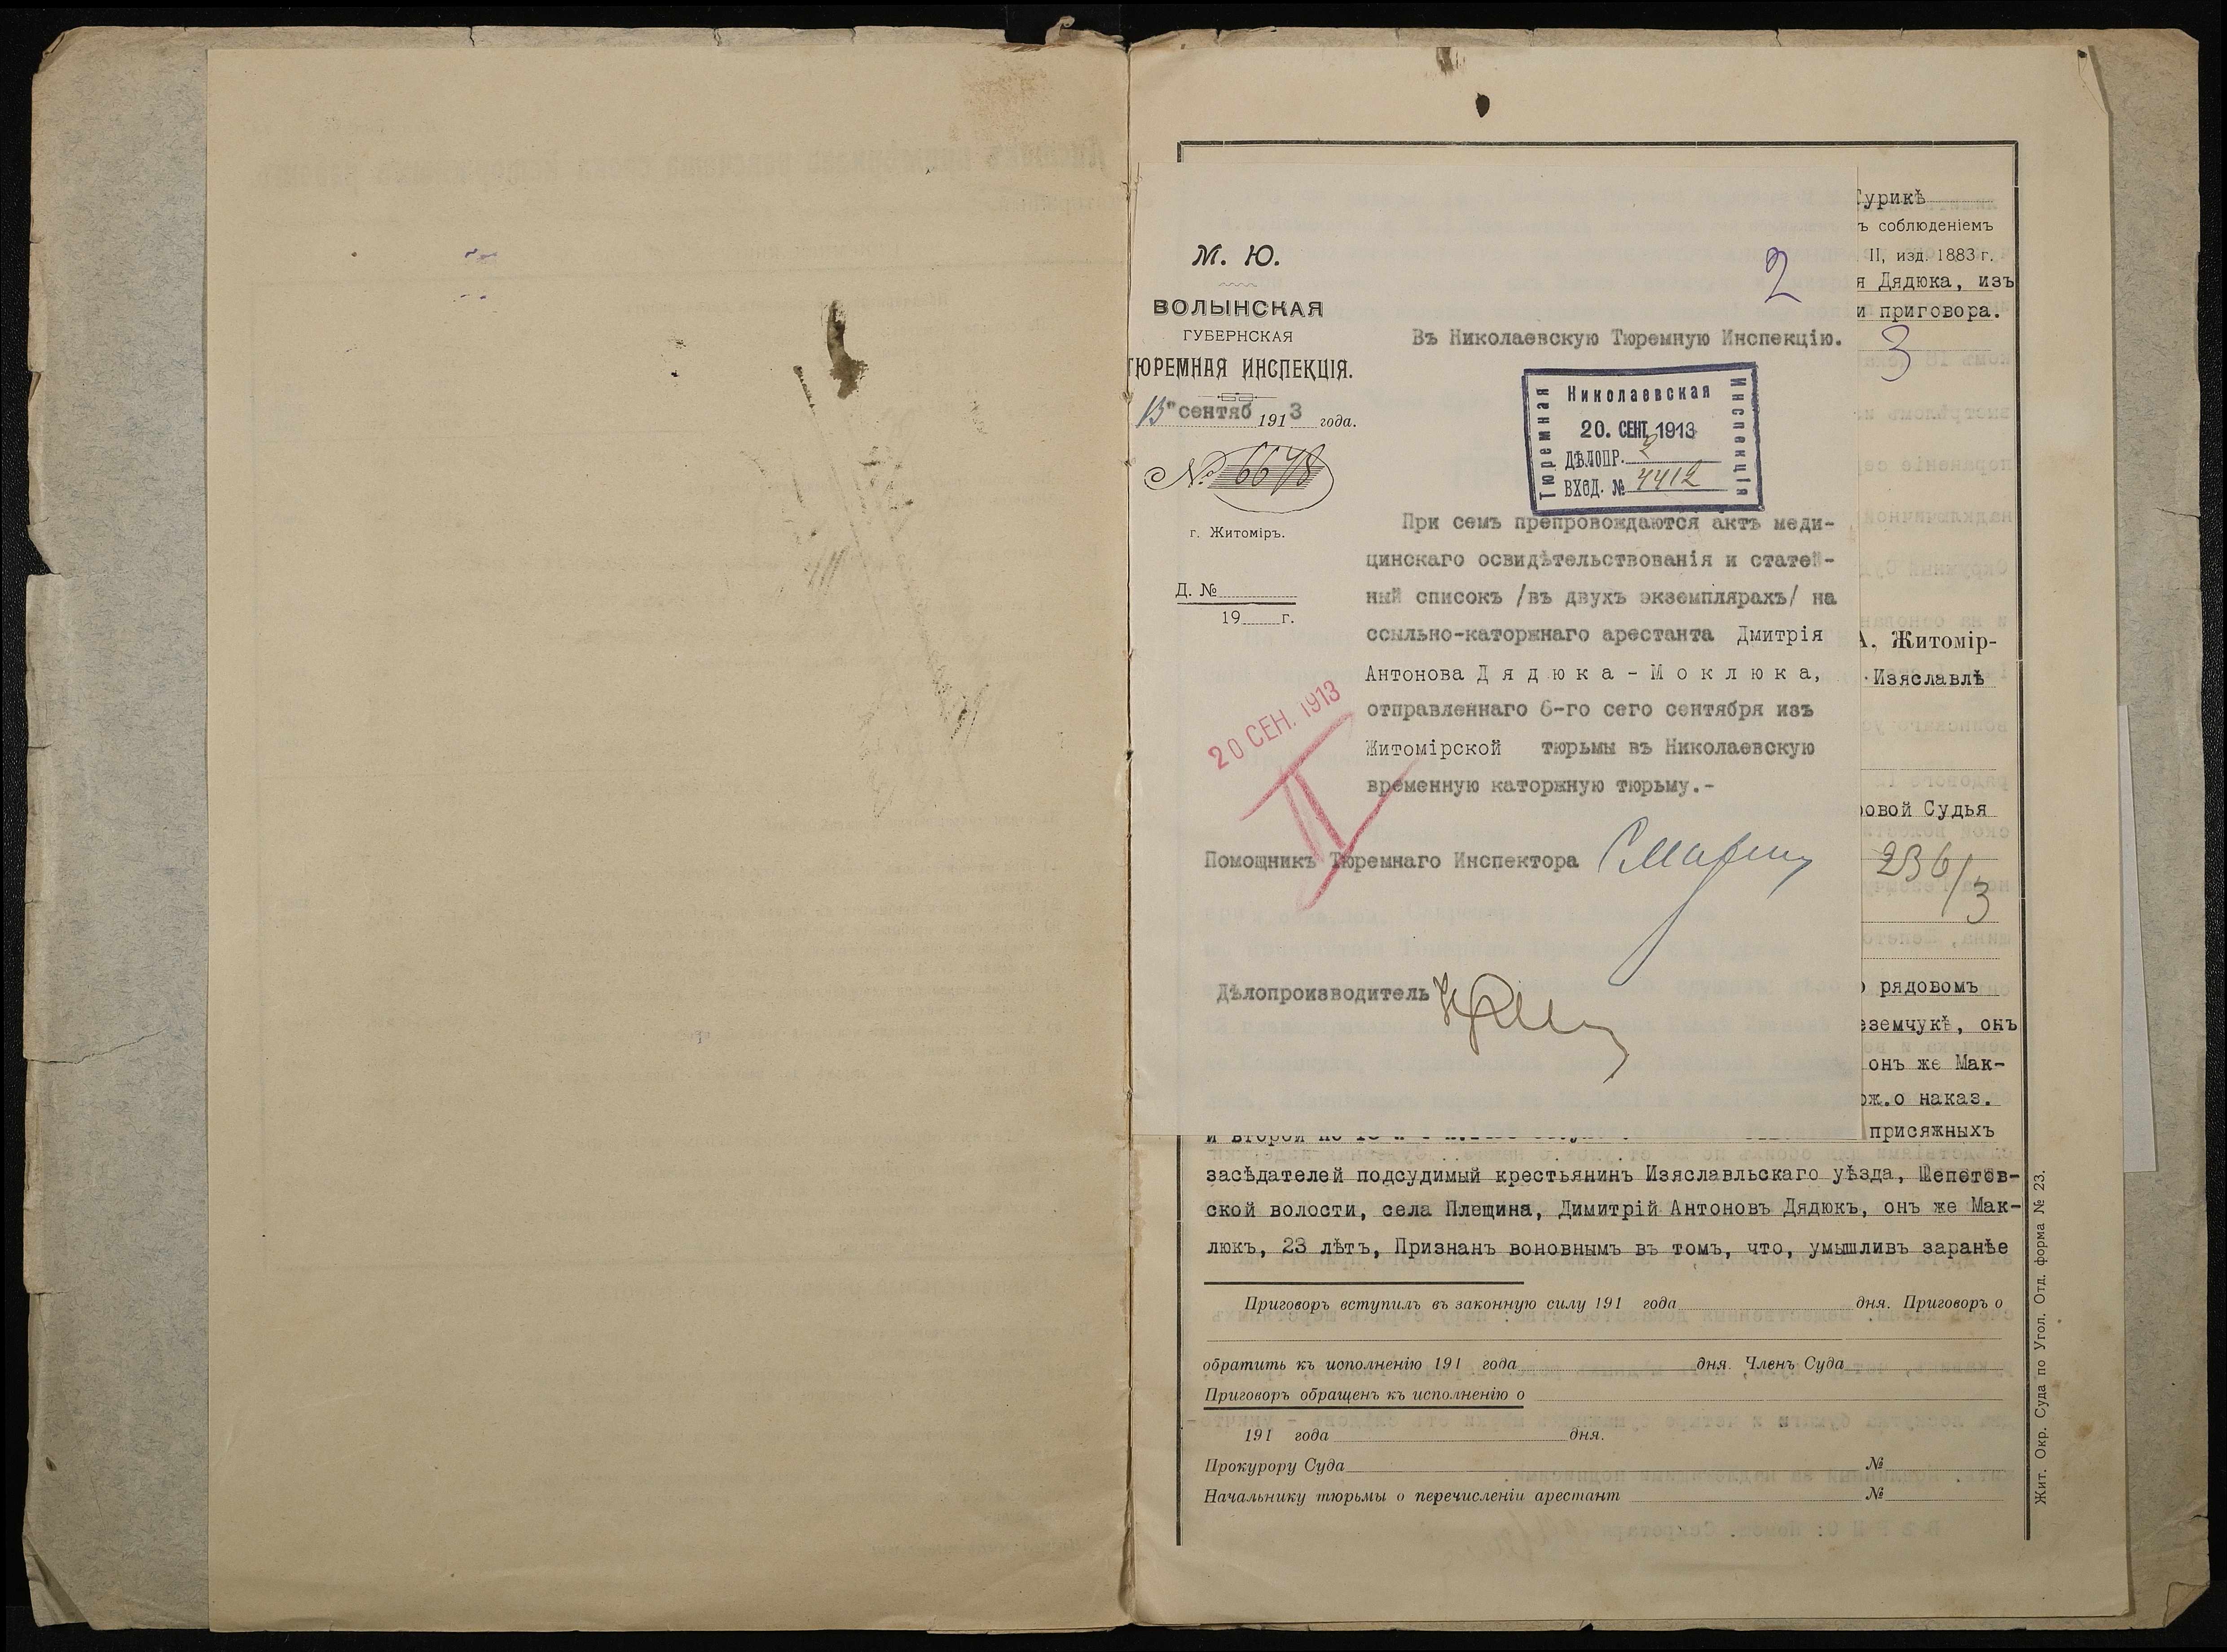 М. Ю.
ВОЛЫНСКАЯ
ГУБЕРНСКАЯ
ТЮРЕМНАЯ ИНСПЕКЦІЯ.
13" сентяб 1913 года.
№ 6678
г. Житоміръ.
Д. №
19 г.
2
Въ Николаевскую Тюремную Инспекцію.
Николаевская
Тюремная
Инспекція
20. СЕНТ. 1913
ДѢЛОПР. 2
ВХОД. № 4412
При семъ препровождаются актъ меди-
цинскаго освидѣтельствованія и статей-
ный списокъ /въ двухъ экземплярахъ/ на
ссыльно-каторжнаго арестанта Дмитрія
Антонова Дядюка-Моклюка,
отправленнаго 6-го сего сентября изъ
Житомірской тюрьмы въ Николаевскую
временную каторжную тюрьму.-
20 СЕН. 1913
Помощникъ Тюремнаго Инспектора
Дѣлопроизводитель
Гурикѣ
ъ соблюденіемъ
II, изд. 1883 г.
я Дядюка, изъ
и приговора.
3
А. Житомір-
Изяславлѣ
овой Судья
236/3
рядовомъ
еземчукѣ, онъ
онъ же Мак-
ож.о наказ.
и второй по присяжныхъ
засѣдателей подсудимый крестьянинъ Изяславльскаго уѣзда, Шепетов-
ской волости, села Плещина, Димитрій Антоновъ Дядюкъ, онъ же Мак-
люкъ, 23 лѣтъ, Признанъ воновнымъ въ томъ, что, умышливъ заранѣе
Приговоръ вступилъ въ законную силу 191 года дня. Приговоръ о
обратить къ исполненію 191 года дня. Членъ Суда
Приговоръ обращенъ къ исполненію о
191 года дня.
Прокурору Суда №
Начальнику тюрьмы о перечисленіи арестант №
Жит. Окр. Суда по Угол. Отд. форма № 23.